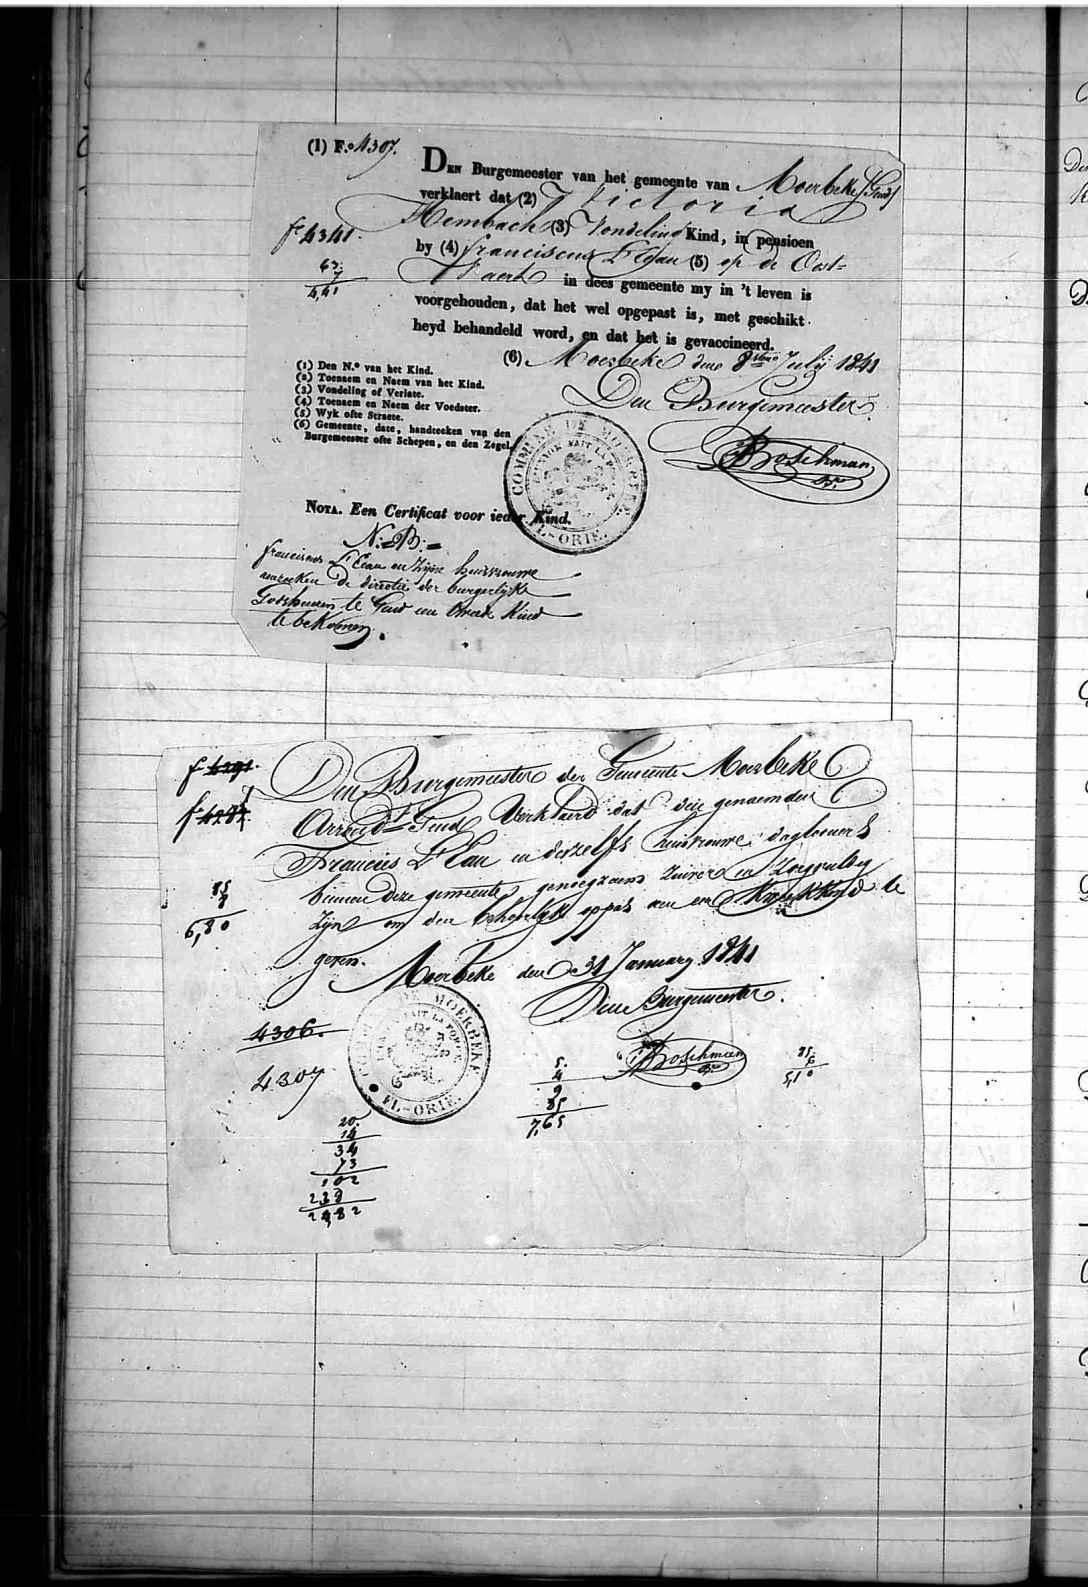 (1) F.º 4307.
DEN Burgemeester van het gemeente van Moerbeke
verklaert dat (2) Victoria
Hembach (3) Vondeling Kind, in pensioen
by (4) franciscus L'Eeau (5) op de Oost=
Vaert in dees gemeente my in 't leven is
voorgehouden, dat het wel opgepast is, met geschikt
heyd behandeld word, en dat het is gevaccineerd.
(6) Moerbeke den 8sten July 1841
Den Burgemeester
Boschman
fº 4341.
63
7
4,41
(1) Den N.º van het Kind.
(2) Toenaem en Naem van het Kind.
(3) Vondeling of Verlate.
(4) Toenaem en Naem der Voedster.
(5) Wyk ofte Straete.
(6) Gemeente, date, handteeken van den
Burgemeester ofte Schepen, en den Zegel.
COMMUNE DE MOERBEKE
L'UNION FAIT LA FORCE
FL-ORIE.
NOTA. Een Certificat voor ieder Kind.
N: B:
franciscus L'Eeau en zijne huisvrouwe
de directie der burgerlyke
Godshuizen te Gend een Kind
te bekomen.
f 4291.
fº 4287
Den Burgemeester der Gemeente Moerbeke
Arrondt Gend Verklaerd dat den genaemden
Francies L'Eau en deszelfs huisvrouwe daglooners
binnen deze gemeente, genoegzaem zuiver en zorgvuldig
zijn om den behoorlijk oppas aen een Kweekkind te
geven.
Moerbeke den 31 January 1841
Den Burgemeester.
Boschman
85
8
6,80
4306.
4307
MOERBEKE
FAIT LA FORCE
FL-ORIE.
5
4
9
85
7,65
85
6
5,10
20
14
34
73
102
238
24,82